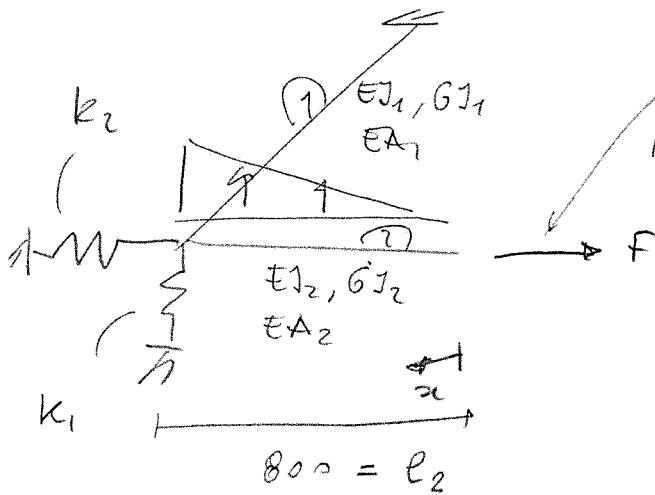 k₂
①
EJ₁, GJ₁
EA₁
②
F
EJ₂, GJ₂
EA₂
x
k₁
800 = l₂